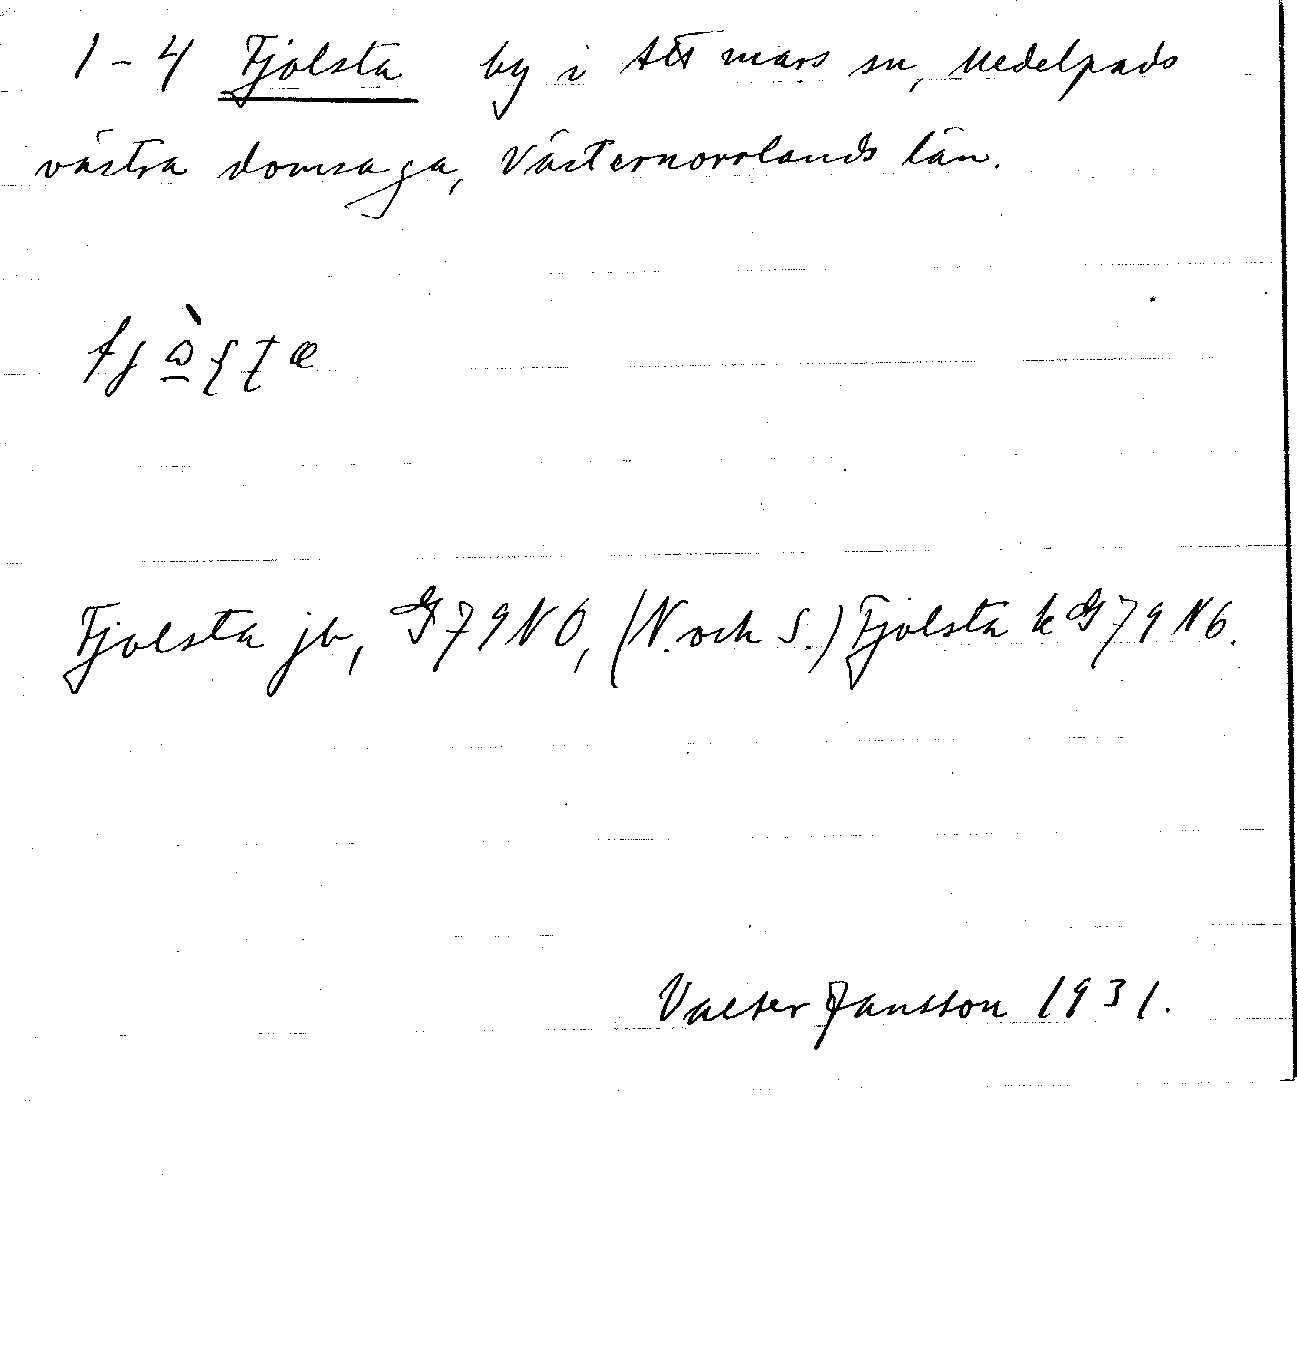 1-4 Fjolsta by i Attmars sn, Medelpads
västra domsaga, Västernorrlands län.
Fjolsta jb, G79NO, (N. och S.) Fjolsta k G79NO.
Valter Jansson 1931.